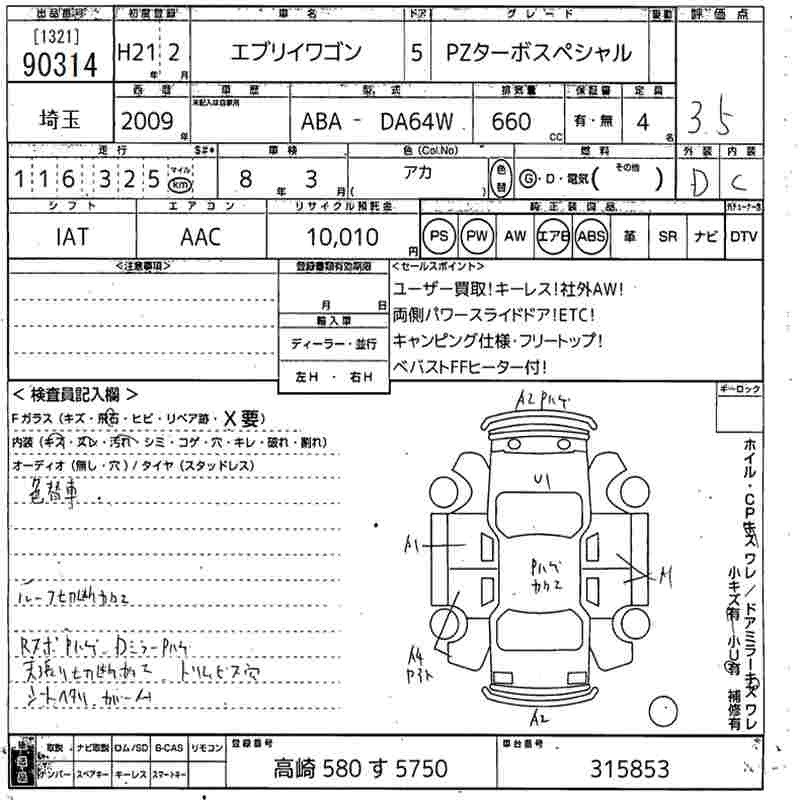 出品番号 初度登録 車名 ドア グレード 評価点
[1321]
90314 H21 2 エブリイワゴン 5 PZターボスペシャル
年 月
西暦 車歴 型式 排気量 保証書 定員
未記入は自家用
埼玉 2009 年 ABA - DA64W 660 CC 有・無 4 名 3.5
走行 S#* 車検 色(Col.No) 燃料 外装 内装
116,325 マイル km 8 年 3 月 アカ ( ) 色替 G・D・電気( その他 ) D C
シフト エアコン リサイクル預託金 純正装備品
IAT AAC 10,010 円 PS PW AW エアB ABS 革 SR ナビ DTV
<注意事項> 登録書類有効期限 <セールスポイント>
月 日
輸入車
ディーラー・並行
左H ・ 右H
ユーザー買取!キーレス!社外AW!
両側パワースライドドア!ETC!
キャンピング仕様・フリートップ!
ベバストFFヒーター付!
< 検査員記入欄 >
Fガラス(キズ・飛石・ヒビ・リペア跡・X要)
内装(キズ・ズレ・汚れ・シミ・コゲ・穴・キレ・破れ・割れ)
オーディオ(無し・穴)/タイヤ(スタッドレス)
色替車.
ルーフ切断カワエ
RスポPハゲ Dミラー Pハゲ
天張り切断カワエ トリムビス穴
シートヘタリ
A2 Pハゲ
U1
A1
Pハゲ
カワエ
A1
A4
A2
キーロック
ホイル・CPキズ ワレ/ドアミラーキズ ワレ
小キズ有 小U有 補修有
取説 ナビ取説 ロム/SD B-CAS リモコン
ナンバー スペアキー キーレス スマートキー
登録番号
高崎 580 す 5750
車台番号
315853